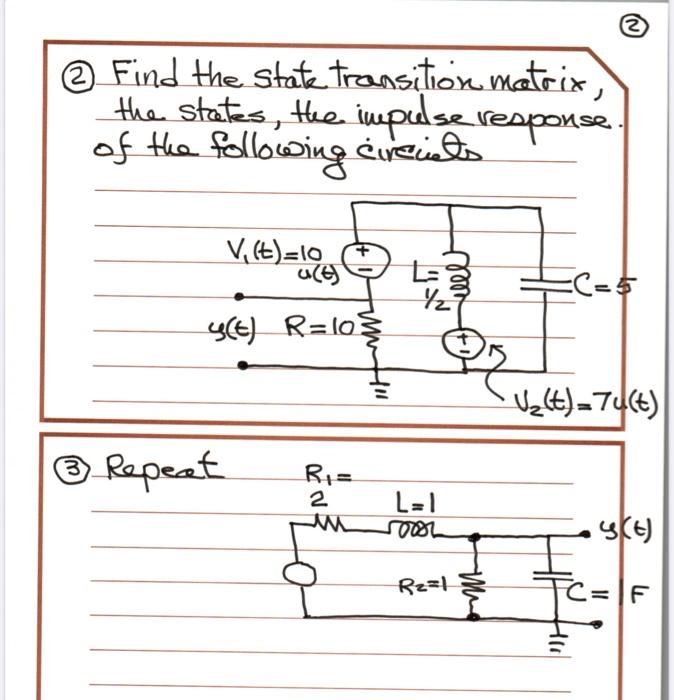 ②
② Find the state transition matrix,
the states, the impulse response
of the following circuits
V₁(t)=10
u(t)
+
−
L=
1/2
C=5
y(t) R=10
+
−
V₂(t)=7u(t)
③ Repeat
R₁=
2
L=1
y(t)
R₂=1
C=1F